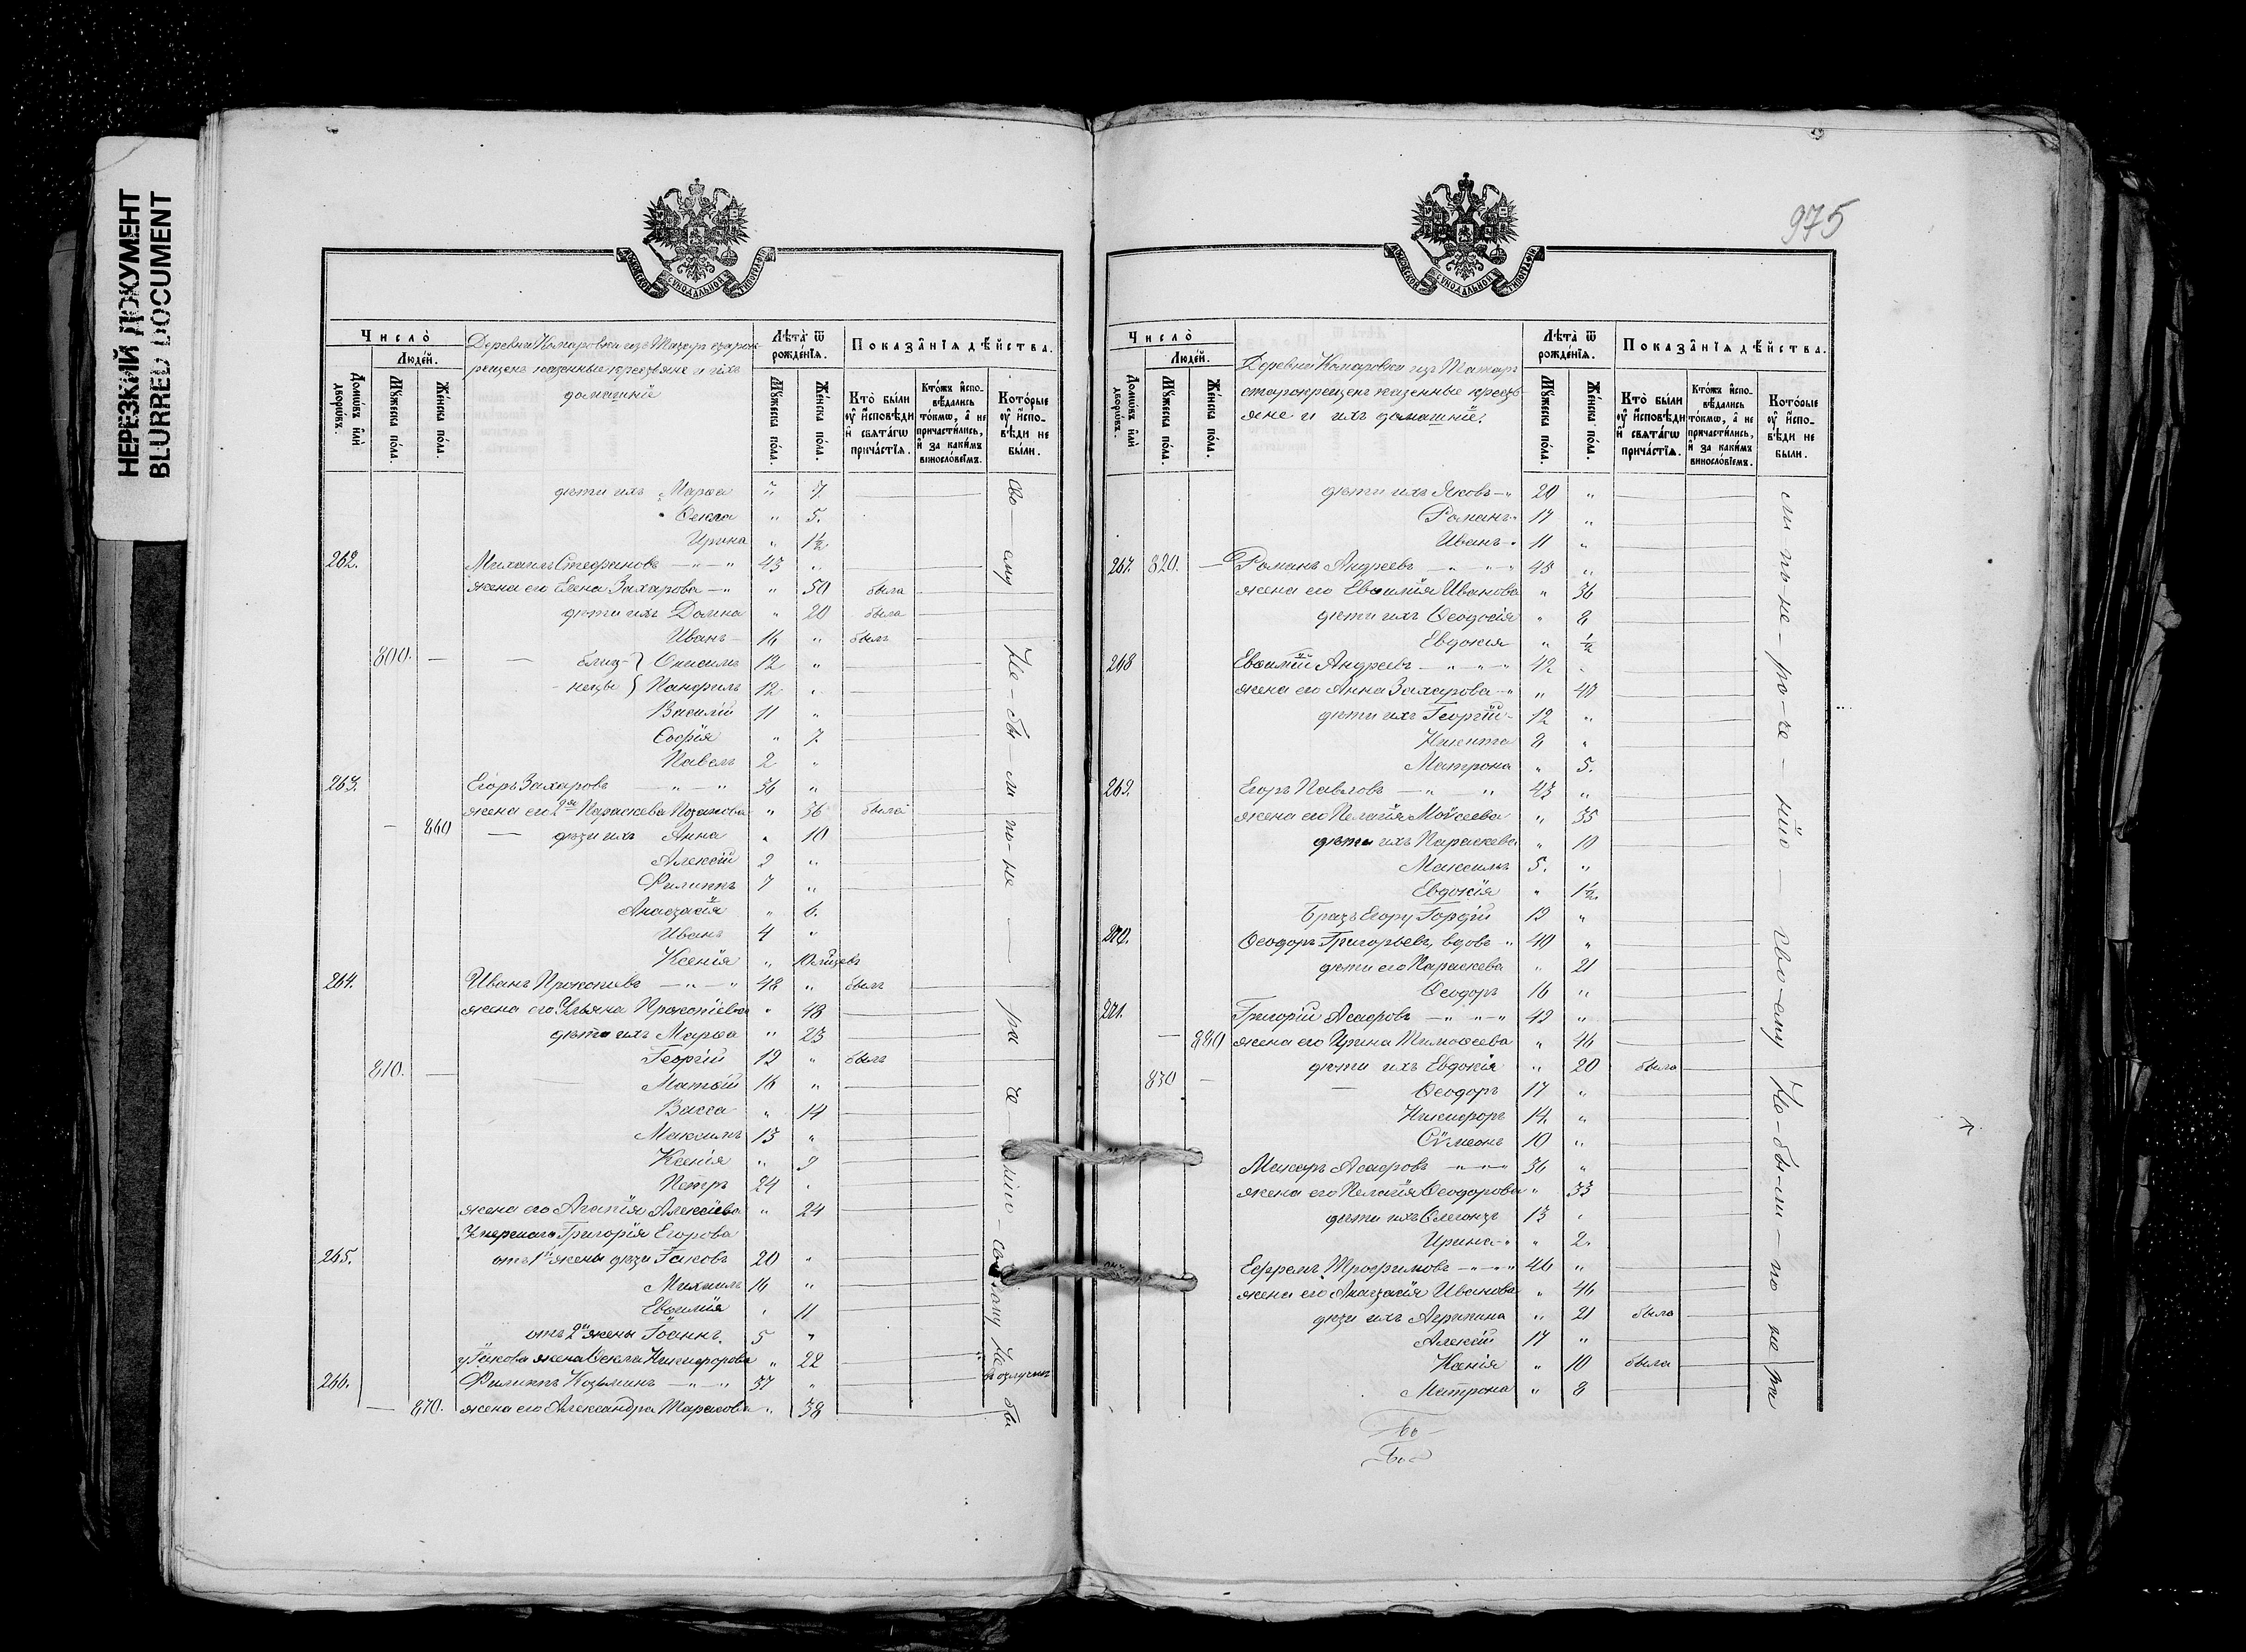 НЕРЕЗКИЙ ДОКУМЕНТ
BLURRED DOCUMENT
МОСКОВСКОЙ СѴНОДАЛЬНОЙ ТИПОГРАФІИ
Число̀
Людей.
Домѡвъ или дворѡвъ.
Мꙋжеска пола.
Женска пола.
Деревни Комаровки изъ Татаръ старок-
рещенъ казенные крестьяне и ихъ
домашніе
Лѣта̀ ѿ рожденїѧ.
Мꙋжеска пола.
Женска пола.
Показанїѧ дѣйства.
Кто̀ были оу исповѣди и свѧтагѡ причастїѧ.
Ктожъ исповѣдались токмѡ, а не причастились, и за какимъ винословїемъ.
Которые оу исповѣди не были.
дѣти ихъ Марѳа " 7.
Ѳекла " 5.
Ирина " 1½
262. Михаилъ Стефановъ — " — " 43 "
жена его Елена Захарова — " " 50 была
дѣти ихъ Домна " 20 была
Иванъ 16 " былъ
800. — — близ- } Онисимъ 12 "
нецы } Панфилъ 12 "
Василій 11 "
Софія " 7.
Павелъ 2 "
263. Егоръ Захаровъ — " — " 36 "
жена его 2я Параскева " 36 была
— 860 — дѣти ихъ Анна " 10
Алексій 9 "
Филиппъ 7 "
Анастасія " 6.
Иванъ 4 "
Ксенія "
264. Иванъ Прокопіевъ — " — " 48 " былъ
жена его Ульяна Прокопіева " 48
дѣти ихъ Марѳа " 23
Георгій 19 " былъ
810. — — Матѳій 16 "
Васса " 14
Максимъ 13 "
Ксенія " 9
Петръ 24 "
жена его Агапія Алексіева " 24
Умершаго Григорія Егорова
265. отъ 1й жены дѣти Іаковъ 20 "
Михаилъ 16 "
Евѳимія " 11
отъ 2й жены Іоаннъ 5 "
у Іакова жена Ѳекла Никифорова " 22
266. Филиппъ Козьминъ — " — " 37 "
— 870. жена его Александра Тарасова " 38
975
МОСКОВСКОЙ СѴНОДАЛЬНОЙ ТИПОГРАФІИ
Число̀
Людей.
Домѡвъ или дворѡвъ.
Мꙋжеска пола.
Женска пола.
Деревни Комаровки изъ Татаръ
старокрещенъ казенные кресть-
яне и ихъ домашніе.
Лѣта̀ ѿ рожденїѧ.
Мꙋжеска пола.
Женска пола.
Показанїѧ дѣйства.
Кто̀ были оу исповѣди и свѧтагѡ причастїѧ.
Ктожъ исповѣдались токмѡ, а не причастились, и за какимъ винословїемъ.
Которые оу исповѣди не были.
дѣти ихъ Яковъ — " 20 "
Романъ " 17 "
Иванъ " 11 "
267. 820. — Романъ Андреевъ — " — " 45 "
жена его Евѳимія Иванова " 36
дѣти ихъ Ѳеодосія " 8
Евдокія ½
268 Евѳимій Андреевъ — " — " 42 "
жена его Анна Захарова — " " 40
дѣти ихъ Георгій 12 "
Никита 8 "
Матрона " 5.
269. Егоръ Павловъ — " " 43 "
жена его Пелагія Мойсеева " 35
дѣти ихъ Параскева " 10
Максимъ 5. "
Евдокія " 1½
братъ Егору Гордій 19 "
270. Ѳеодоръ Григорьевъ, вдовъ " 40 "
дѣти его Параскева " 21
Ѳеодоръ 16 "
271. Григорій — " — " 42 "
— 880 жена его Ирина Тимоѳеева " 46
дѣти ихъ Евдокія " 20 была
830 — — Ѳеодоръ 17 "
Никифоръ 14. "
Сѵмеонъ 10 "
Макаръ — " — " 36 "
жена его Пелагія Ѳеодорова " 33
дѣти ихъ 13 "
Ирина " " 2.
Ефремъ Трофимовъ — " — " 46 "
жена его Анастасія Иванова " 46
дѣти ихъ Агрипина " 21 была
Алексій 17 "
Ксенія " 10 была
Матрона " 8